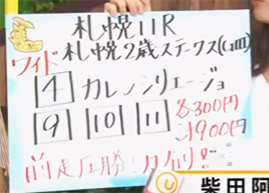 札幌11R
ワイド 札幌2歳ステークス(GIII)
4 カレンナリエージョ
9 10 11 各300円
計900円
前走圧勝!
柴田阿